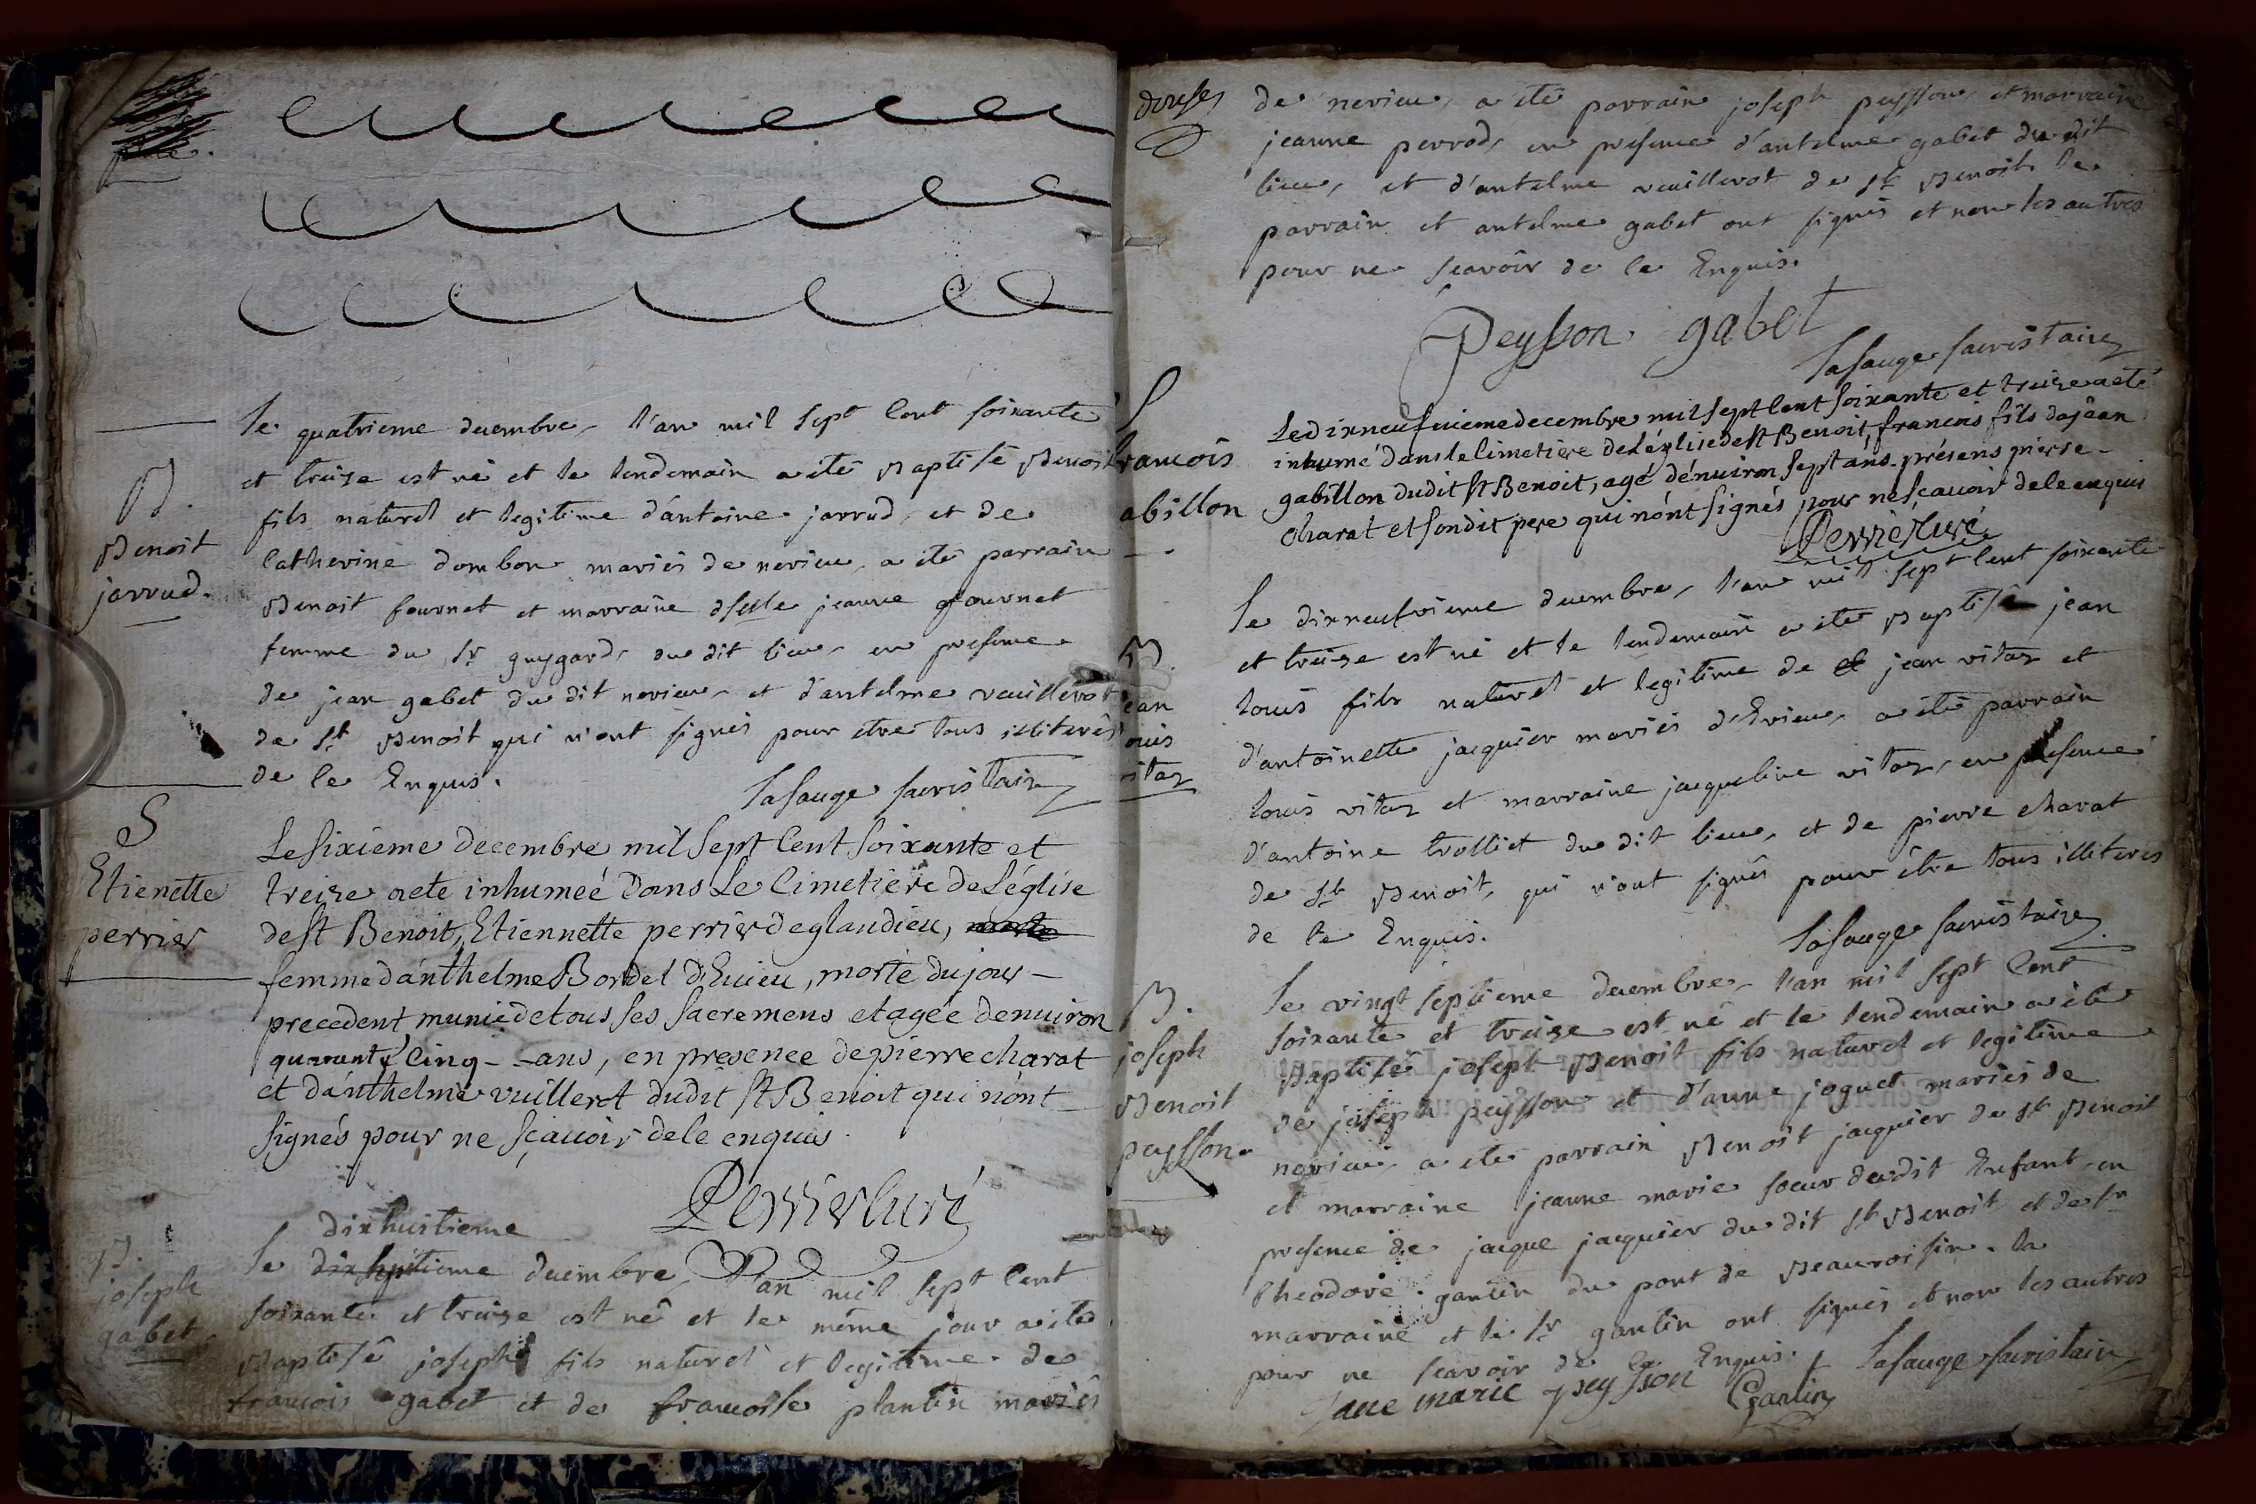 Le quatrieme decembre, l'an mil sept cent soixante
B.
Benoit
jarrud.
et treize est né et le lendemain a été Baptisé Benoit
fils naturel et legitime d'antoine jarrud, et de
Catherine dombon mariés de nerieu, a été parrain
Benoit fournet et marraine dslle jeanne fournet
femme du Sr guygard, du dit lieu, en presence
de jean gabet du dit nerieu, et d'antelme veuillerot
de St Benoit qui n'ont signés pour etre tous illiterés
de ce Enquis.
Lasauge sacristain
S
Etienette
perrier
Le sixiéme decembre mil sept Cent soixante et
treize aeté inhumeé Dans Le Cimetiere deLéglise
deSt Benoit, Etiennette perrier deglandieu,
femme dánthelme Bordel d'Euieu, morte du jour
precedent munie de tous ses sacremens et agée denuiron
quarante Cinq - ans, en presence de pierre charat
et dánthelme vuillerot dudit St Benoit qui n'ont
signés pour ne sçauoir dele enquis.
Perrier Curé
B.
joseph
gabet
dixhuitieme
le decembre, l'an mil sept Cent
soixante et treize est né et le même jour a été
Baptisé joseph fils naturel et legitime de
francois gabet et de francoise plantin mariés
douses
de nerieu, a été parrain joseph peysson, et marraine
jeanne perrod, en presence d'antelme gabet du dit
lieu, et d'antelme veuillerot de St Benoit. le
parrain et antelme gabet ont signés et non les autres
pour ne scavoir de ce Enquis.
Peysson gabet
Lasauge sacristain
S
francois
gabillon
Le dixneufuieme decembre mil sept Cent soixante et treize aeté
inhumé dans le Cimetière deLéglise deSt Benoit, francois fils dejéan
gabillon dudit St Benoit, agé dénuiron sept ans. présens pierre
Charat et sondit pere qui nónt signés pour nesçauoir dele enquis
Perrier Curé
B.
jean
louis
vitoz
Le dixneufvieme decembre, l'an mill sept Cent soixante
et treize est né et le lendemain a été Baptisé jean
louis fils naturel et legitime de jean vitoz et
d'antoinette jacquier mariés d'Evieu, a été parrain
louis vitoz et marraine jacqueline vitoz, en presence
d'antoine trolliet du dit lieu, et de pierre charat
de St Benoit, qui n'ont signés pour être tous illiterés
de ce Enquis.
Lasauge sacristain
B.
joseph
Benoit
peysson.
Le vingt septieme decembre, l'an mil sept Cent
soixante et treize est né et le lendemain a été
Baptisé joseph Benoit fils naturel et legitime
de joseph peysson et d'anne joguet mariés de
nerieu, a été parrain Benoit jacquier de St Benoit
et marraine jeanne marie soeur dudit Enfant, en
presence de jacque jacquier du dit St Benoit et de Sr
theodore gantin du pont de Beauvoisin. la
marraine et le Sr gantin ont signés et non les autres
pour ne scavoir de ce Enquis.
Lasauge sacristain
jane marie peysson Gantin